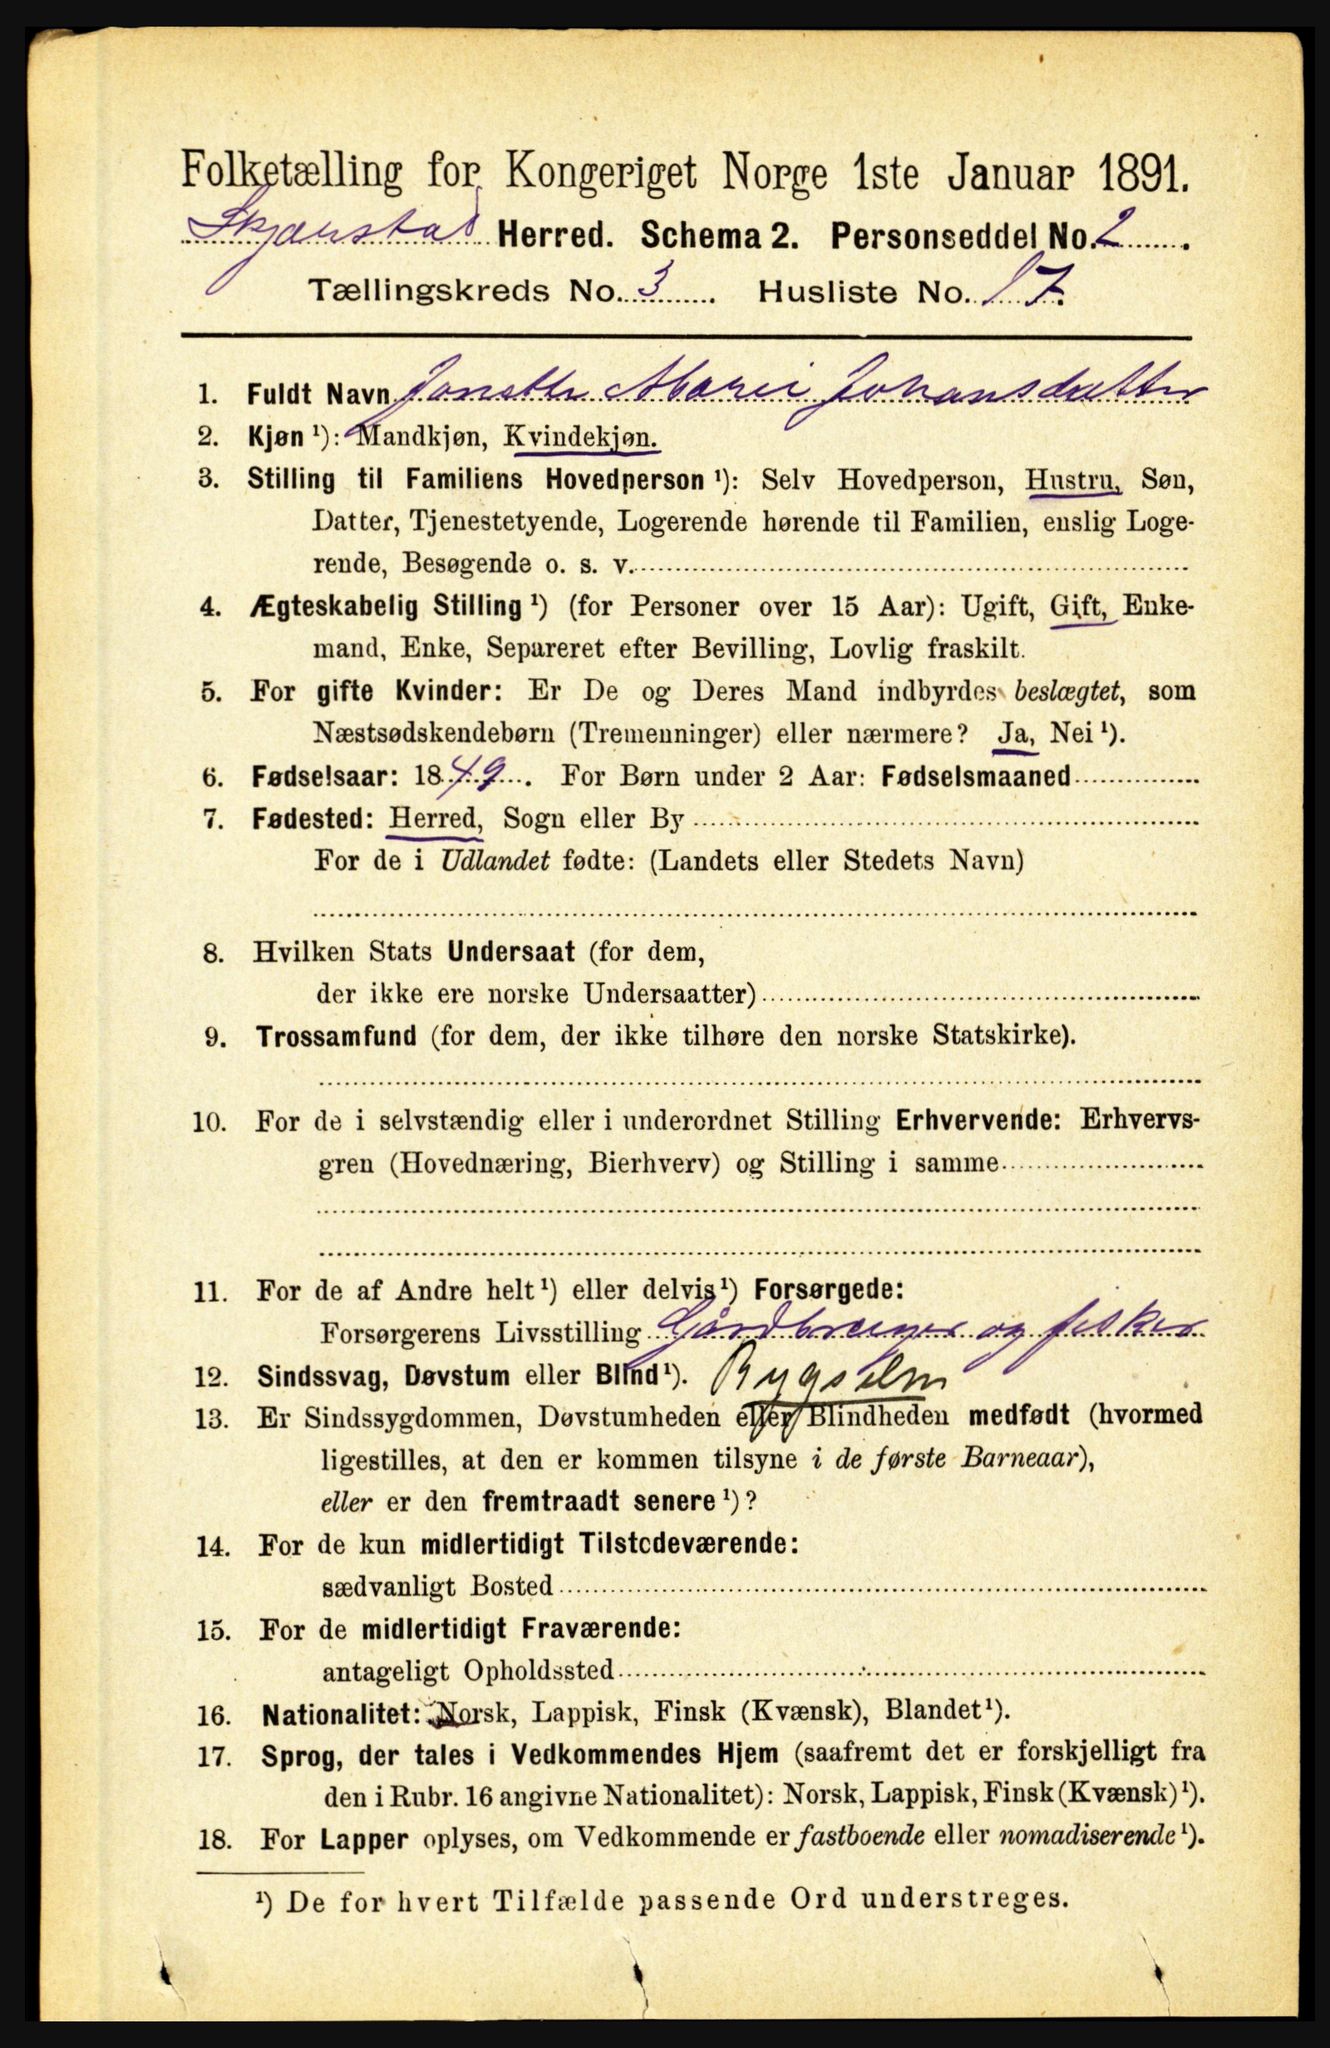 Folketælling for Kongeriget Norge 1ste Januar 1891.
Skjærstad Herred. Schema 2. Personseddel No. 2.
Tællingskreds No. 3. Husliste No. 17.
1. Fuldt Navn Jonette Marie Johansdatter
2. Kjøn ¹): Mandkjøn, Kvindekjøn.
3. Stilling til Familiens Hovedperson ¹): Selv Hovedperson, Hustru, Søn,
Datter, Tjenestetyende, Logerende hørende til Familien, enslig Loge-
rende, Besøgende o. s. v.
4. Ægteskabelig Stilling ¹) (for Personer over 15 Aar): Ugift, Gift, Enke-
mand, Enke, Separeret efter Bevilling, Lovlig fraskilt.
5. For gifte Kvinder: Er De og Deres Mand indbyrdes beslægtet, som
Næstsødskendebørn (Tremenninger) eller nærmere? Ja, Nei ¹).
6. Fødselsaar: 1849. For Børn under 2 Aar: Fødselsmaaned
7. Fødested: Herred, Sogn eller By
For de i Udlandet fødte: (Landets eller Stedets Navn)
8. Hvilken Stats Undersaat (for dem,
der ikke ere norske Undersaatter)
9. Trossamfund (for dem, der ikke tilhøre den norske Statskirke).
10. For de i selvstændig eller i underordnet Stilling Erhvervende: Erhvervs-
gren (Hovednæring, Bierhverv) og Stilling i samme
11. For de af Andre helt ¹) eller delvis ¹) Forsørgede:
Forsørgerens Livsstilling Gårdbruger og fisker
12. Sindssvag, Døvstum eller Blind ¹). Bygselm
13. Er Sindssygdommen, Døvstumheden eller Blindheden medfødt (hvormed
ligestilles, at den er kommen tilsyne i de første Barneaar),
eller er den fremtraadt senere ¹)?
14. For de kun midlertidigt Tilstedeværende:
sædvanligt Bosted
15. For de midlertidigt Fraværende:
antageligt Opholdssted
16. Nationalitet: Norsk, Lappisk, Finsk (Kvænsk), Blandet ¹).
17. Sprog, der tales i Vedkommendes Hjem (saafremt det er forskjelligt fra
den i Rubr. 16 angivne Nationalitet): Norsk, Lappisk, Finsk (Kvænsk) ¹).
18. For Lapper oplyses, om Vedkommende er fastboende eller nomadiserende ¹).
¹) De for hvert Tilfælde passende Ord understreges.